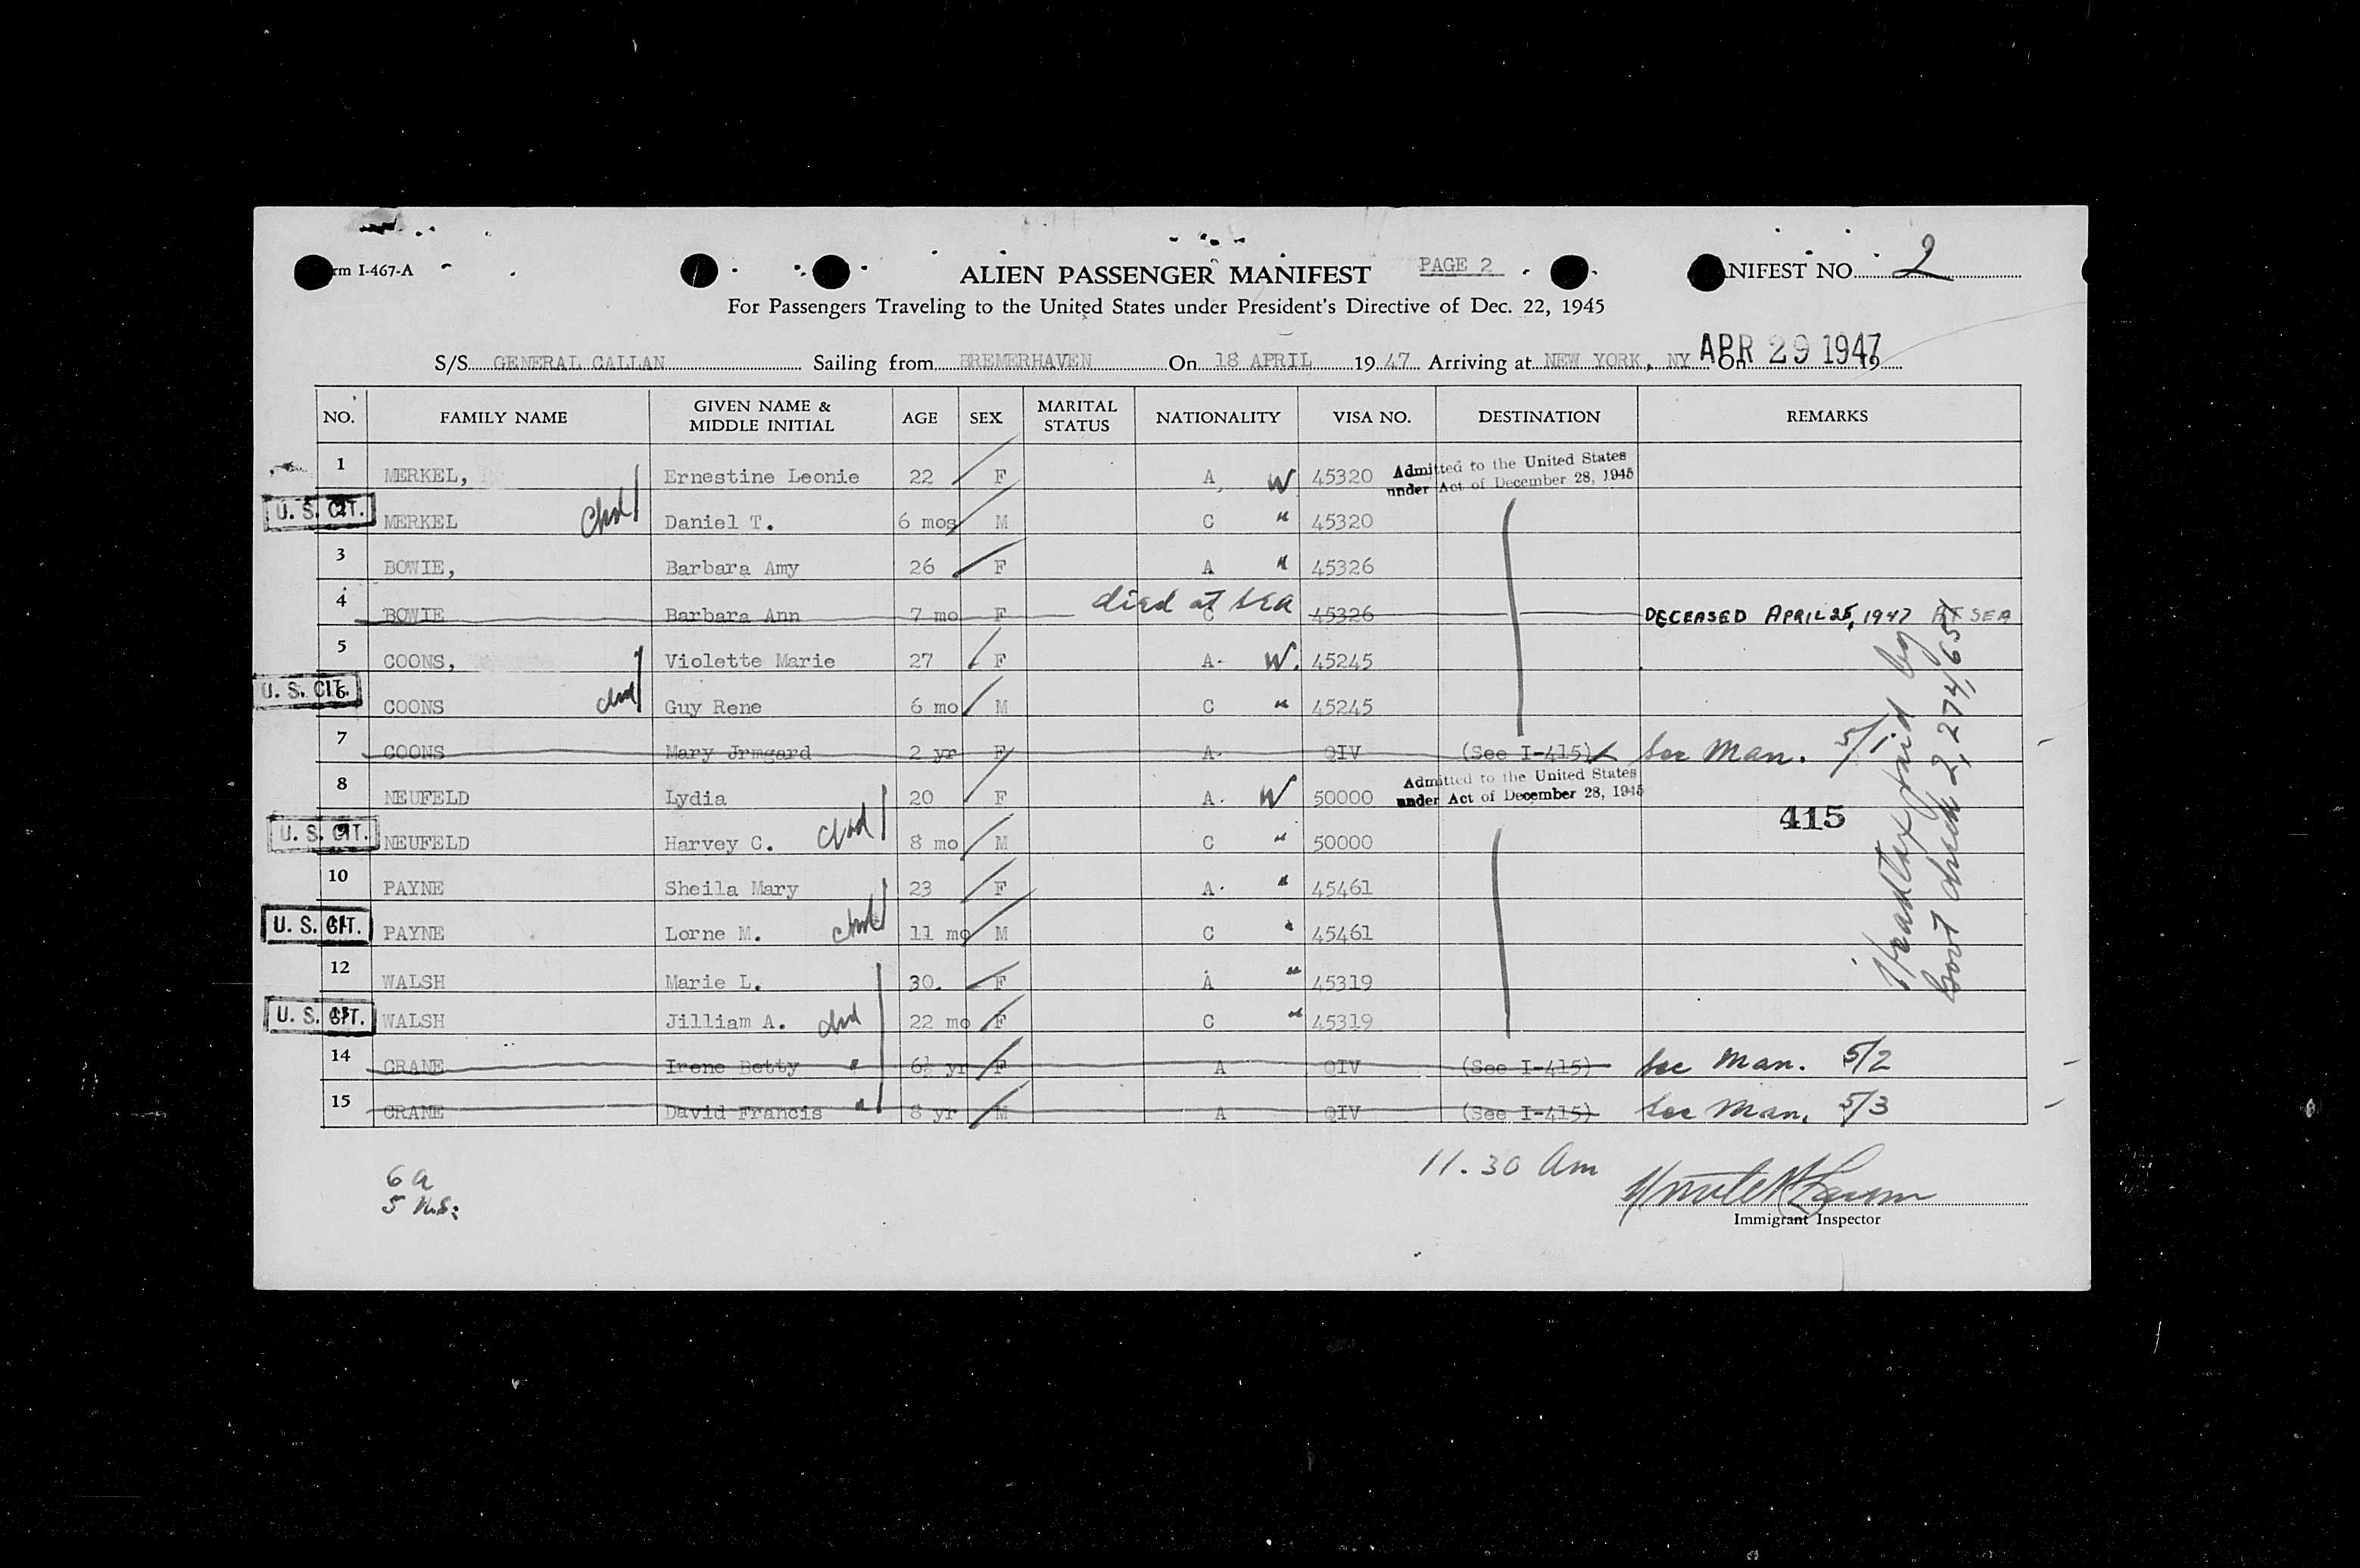 rm I-467-A
ALIEN PASSENGER MANIFEST PAGE 2
NIFEST NO. 2
For Passengers Traveling to the United States under President's Directive of Dec. 22, 1945
S/S GENERAL CALLAN Sailing from BREMERHAVEN On 18 APRIL 19 47 Arriving at NEW YORK, NY On APR 29 1947 19
NO. FAMILY NAME GIVEN NAME & MIDDLE INITIAL AGE SEX MARITAL STATUS NATIONALITY VISA NO. DESTINATION REMARKS
1 MERKEL, Ernestine Leonie 22 F A W 45320 Admitted to the United States under Act of December 28, 1945
U. S. CIT. 2 MERKEL chd Daniel T. 6 mos M C " 45320
3 BOWIE, Barbara Amy 26 F A " 45326
4 BOWIE Barbara Ann 7 mo F died at sea C 45326 DECEASED APRIL 25, 1947 AT SEA
5 COONS, Violette Marie 27 F A. W. 45245
U. S. CIT. 6 COONS chd Guy Rene 6 mo M C " 45245
7 COONS Mary Jrmgard 2 yr F A. QIV (See I-415) See Man. 5/1
8 NEUFELD Lydia 20 F A. W 50000 Admitted to the United States under Act of December 28, 1945
415
U. S. CIT. 9 NEUFELD Harvey C. chd 8 mo M C " 50000
10 PAYNE Sheila Mary 23 F A. " 45461
U. S. CIT. 11 PAYNE Lorne M. chd 11 mo M C " 45461
12 WALSH Marie L. 30. F A " 45319
U. S. CIT. 13 WALSH Jilliam A. chd 22 mo F C " 45319
14 CRANE Irene Betty " 6½ yr F A QIV (See I-415) See Man. 5/2
15 CRANE David Francis " 8 yr M A QIV (See I-415) See Man. 5/3
Headtax paid by
Govt check 2,274,651
6 a
5 U.S.
11.30 am
Immigrant Inspector